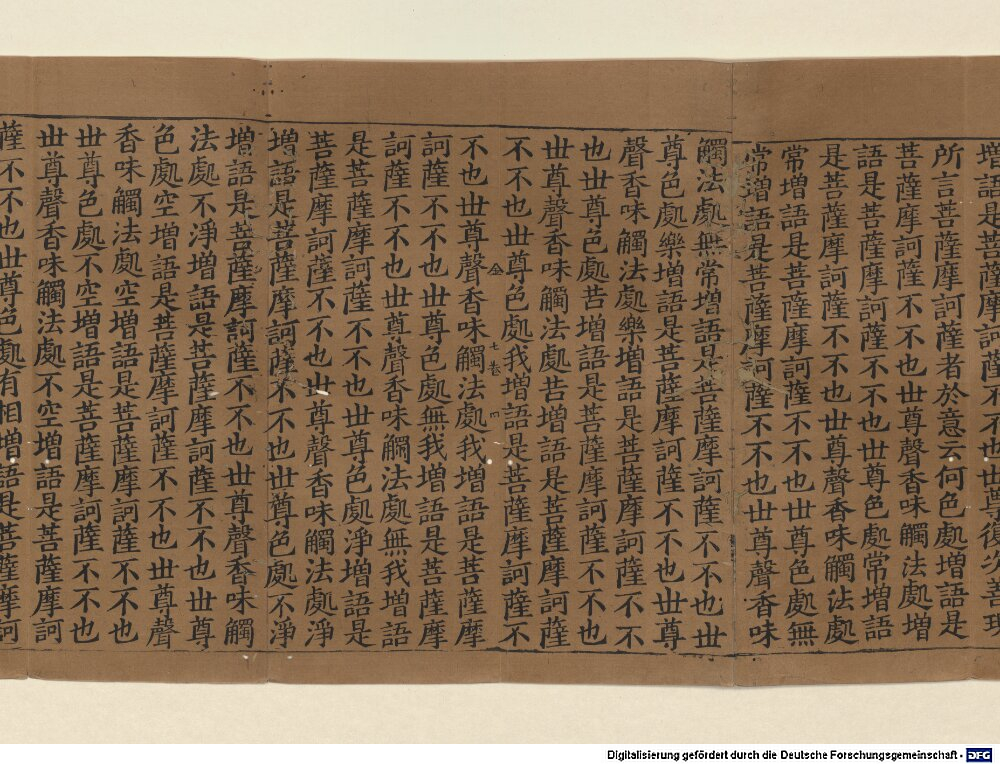 増語是菩薩摩訶薩不不也世尊復次善現
所言菩薩摩訶薩者於意云何色處増語是
菩薩摩訶薩不不也世尊聲香味觸法處増
語是菩薩摩訶薩不不也世尊色處常増語
是菩薩摩訶薩不不也世尊聲香味觸法處
常増語是菩薩摩訶薩不不也世尊色處無
常増語是菩薩摩訶薩不不也世尊聲香味
觸法處無常増語是菩薩摩訶薩不不也世
尊色處樂増語是菩薩摩訶薩不不也世尊
聲香味觸法處樂増語是菩薩摩訶薩不不
也世尊色處苦増語是菩薩摩訶薩不不也
世尊聲香味觸法處苦増語是菩薩摩訶薩
不不也世尊色處我増語是菩薩摩訶薩不
金 七卷
不也世尊聲香味觸法處我増語是菩薩摩
訶薩不不也世尊色處無我増語是菩薩摩
訶薩不不也世尊聲香味觸法處無我増語
是菩薩摩訶薩不不也世尊色處淨増語是
菩薩摩訶薩不不也世尊聲香味觸法處淨
増語是菩薩摩訶薩不不也世尊色處不淨
増語是菩薩摩訶薩不不也世尊聲香味觸
法處不淨増語是菩薩摩訶薩不不也世尊
色處空増語是菩薩摩訶薩不不也世尊聲
香味觸法處空増語是菩薩摩訶薩不不也
世尊色處不空増語是菩薩摩訶薩不不也
世尊聲香味觸法處不空増語是菩薩摩訶
薩不不也世尊色處有相増語是菩薩摩訶
Digitalisierung gefördert durch die Deutsche Forschungsgemeinschaft - DFG